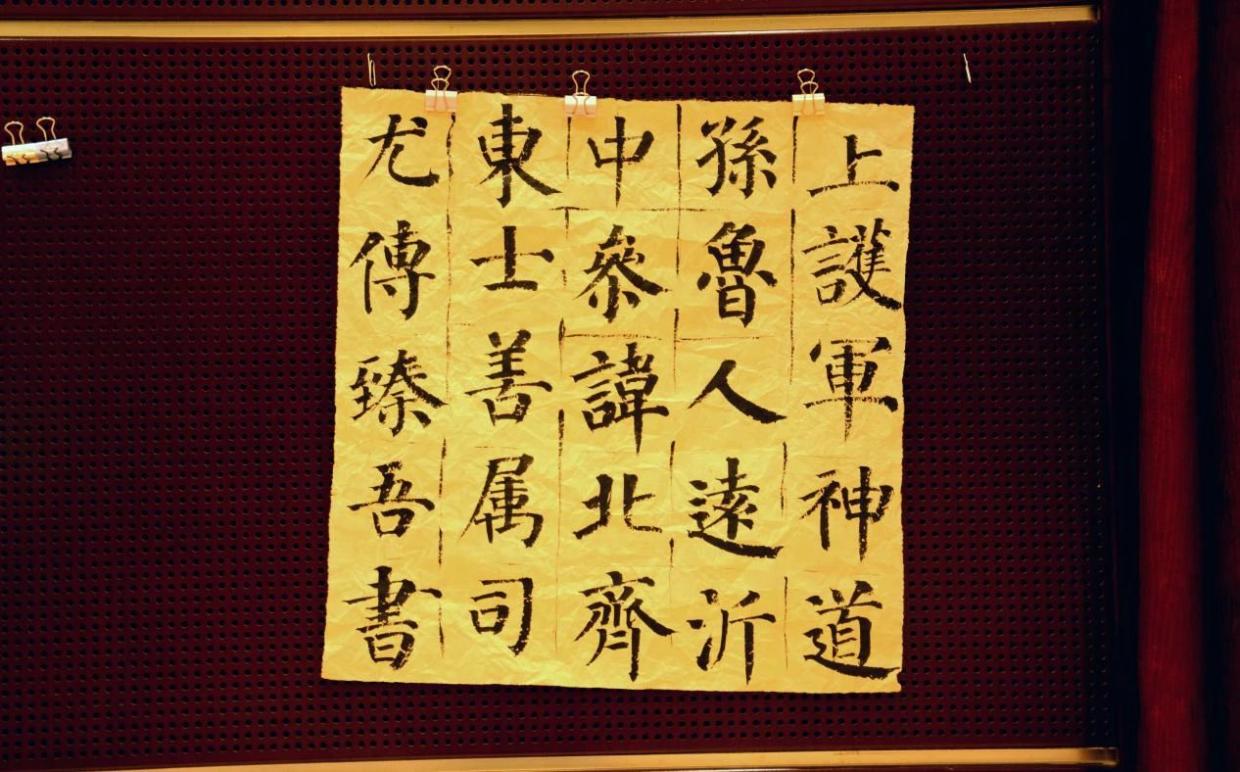 上護軍神道
孫魯人遠沂
中参諱北齊
東士善属司
尤傳臻吾書